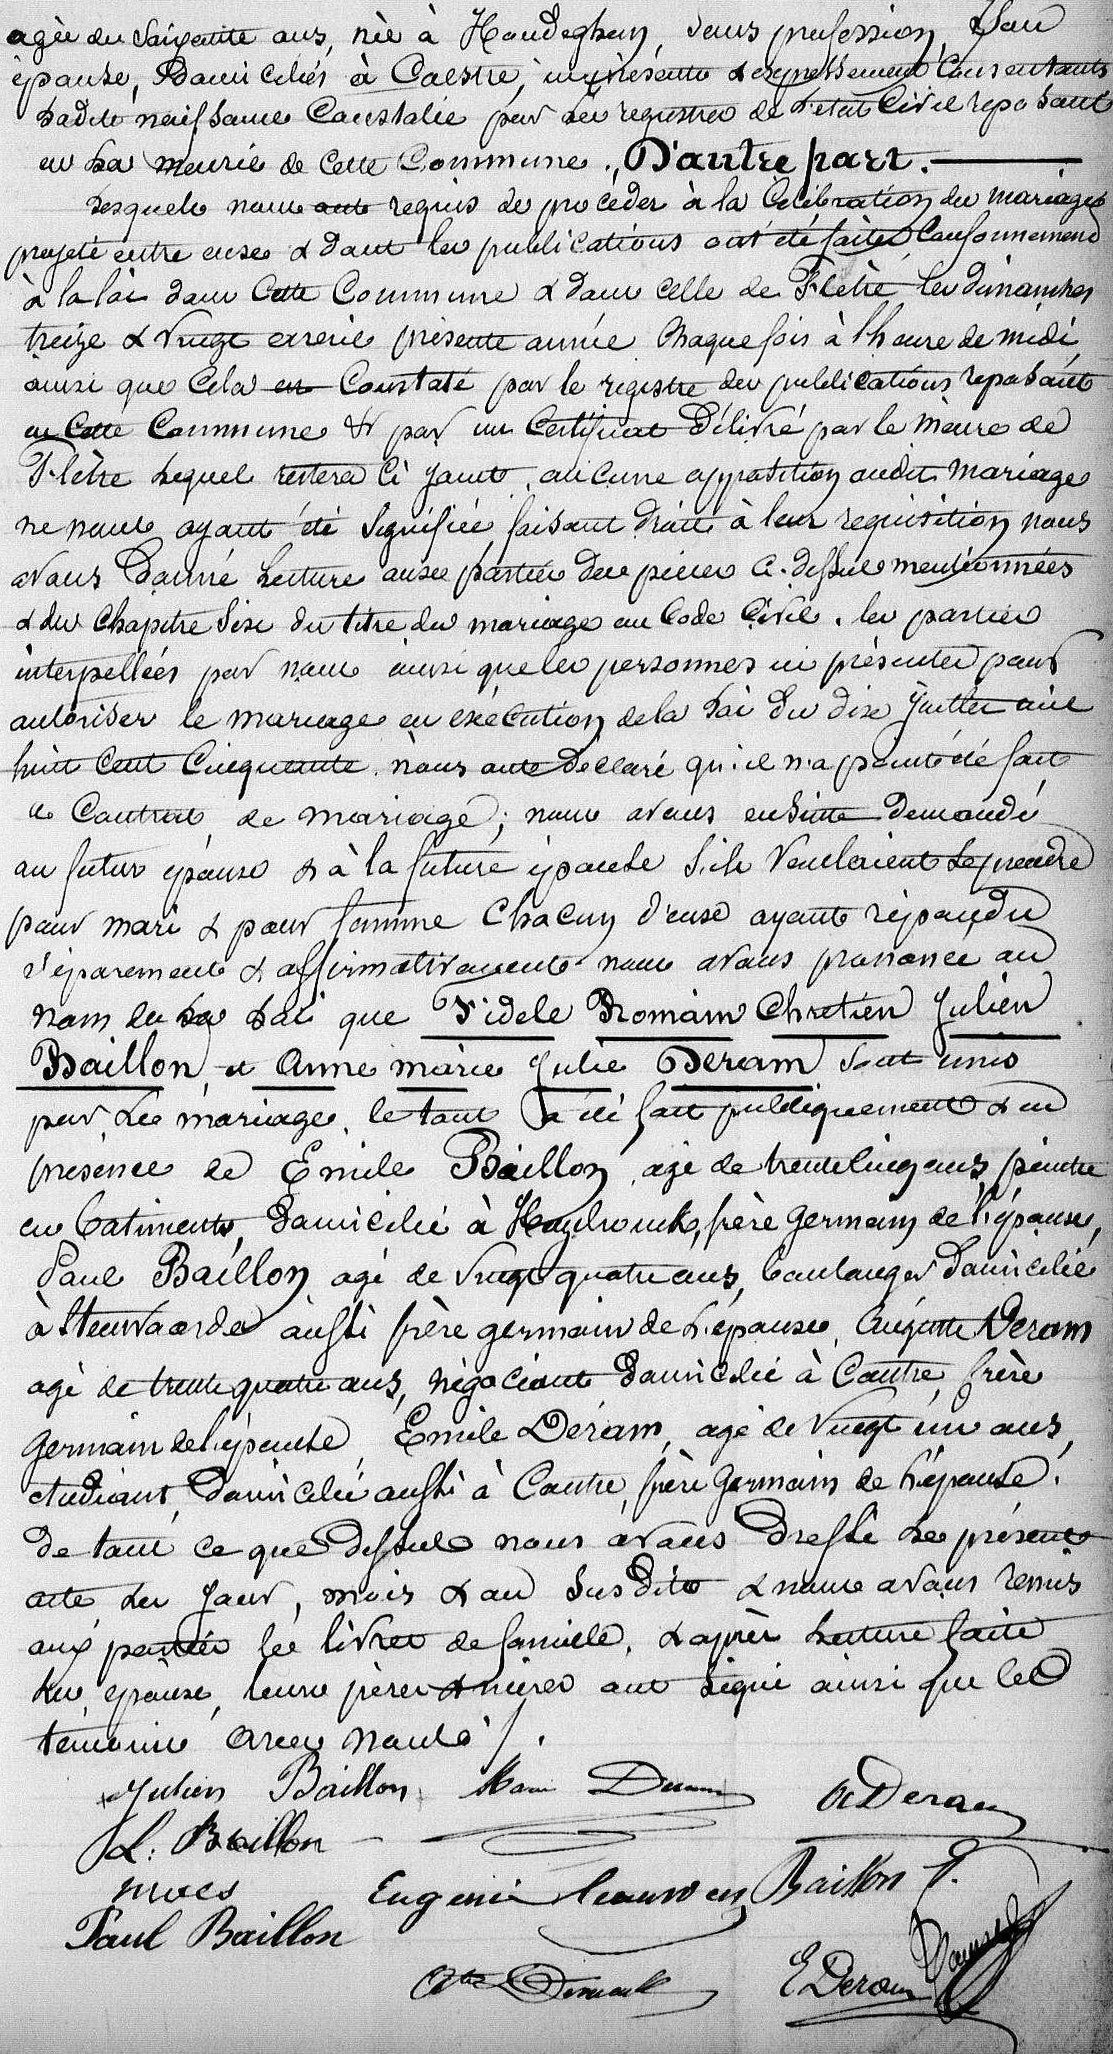 agée de Soixante ans, née à Hondeghem, sans profession, Son
épouse, Domiciliés à Caestre, ici présents & expressement Consentants
Sadite naissance Constatée par les registres de l'état Civil reposant
en la mairie de Cette Commune, D'autre part.
Lesquels nous ont requis de procéder à la Célébration du mariage
projeté entre eux & dont les publications ont été faites Conformement
à la loi dans Cette Commune & dans celle de Flètre les dimanches
treize & vingt présente année Chaque fois à l'heure de midi
ainsi que Cela est Constaté par le registre des publications reposant
en Cette Commune & par un Certificat Délivré par le Maire de
Flètre Lequel restera Ci joint, aucune opposition audit Mariage
ne nous ayant été Signifiée, faisant droit à leur requisition nous
avons Donné Lecture aux parties des pièces Ci-dessus mentionnées
& du Chapitre Six du titre du mariage au Code Civil. les parties
interpellées par nous ainsi que les personnes ici présentes pour
autoriser le mariage en exécution de la Loi du dix Juillet mil
huit Cent Cinquante, nous ont Déclaré qu'il n'a point été fait
de Contrat de mariage; nous avons ensuite Demandé
au futur époux & à la future épouse S'ils Voulaient Se prendre
pour mari & pour femme Chacun d'eux ayant répondu
séparement & affirmativement nous avons prononcé au
nom de La Loi que Fidele Romain Chretien Julien
Baillon, et Anne marie Julie Deram Sont unis
par Le mariage. le tout a été fait publiquement & en
presence de Emile Baillon, agé de trente cinq ans, peintre
en batiments, Domicilié à Hazebrouck, frère germain de l'épouse,
Paul Baillon, agé de Vingt quatre ans, boulanger Domicilié
à Steenvoorde aussi frère germain de l'époux, Auguste Deram
agé de trente quatre ans, négociant Domicilié à Caestre, frère
Germain de l'épouse, Emile Déram, agé de Vingt un ans,
etudiant, Domicilié aussi à Caestre, frère Germain de l'épouse.
De tout ce que Dessus nous avons Dressé Le présent
acte Les Jour, mois & an Susdits & nous avons remis
aux parties le livret de famille, & après Lecture faite
Les époux, leurs pères & mères ont Signé ainsi que les
témoins avec nous /.
Julien Baillon Marie Deram A Deram
L. Baillon
Paul Baillon Eugenie Baillon
E Deram